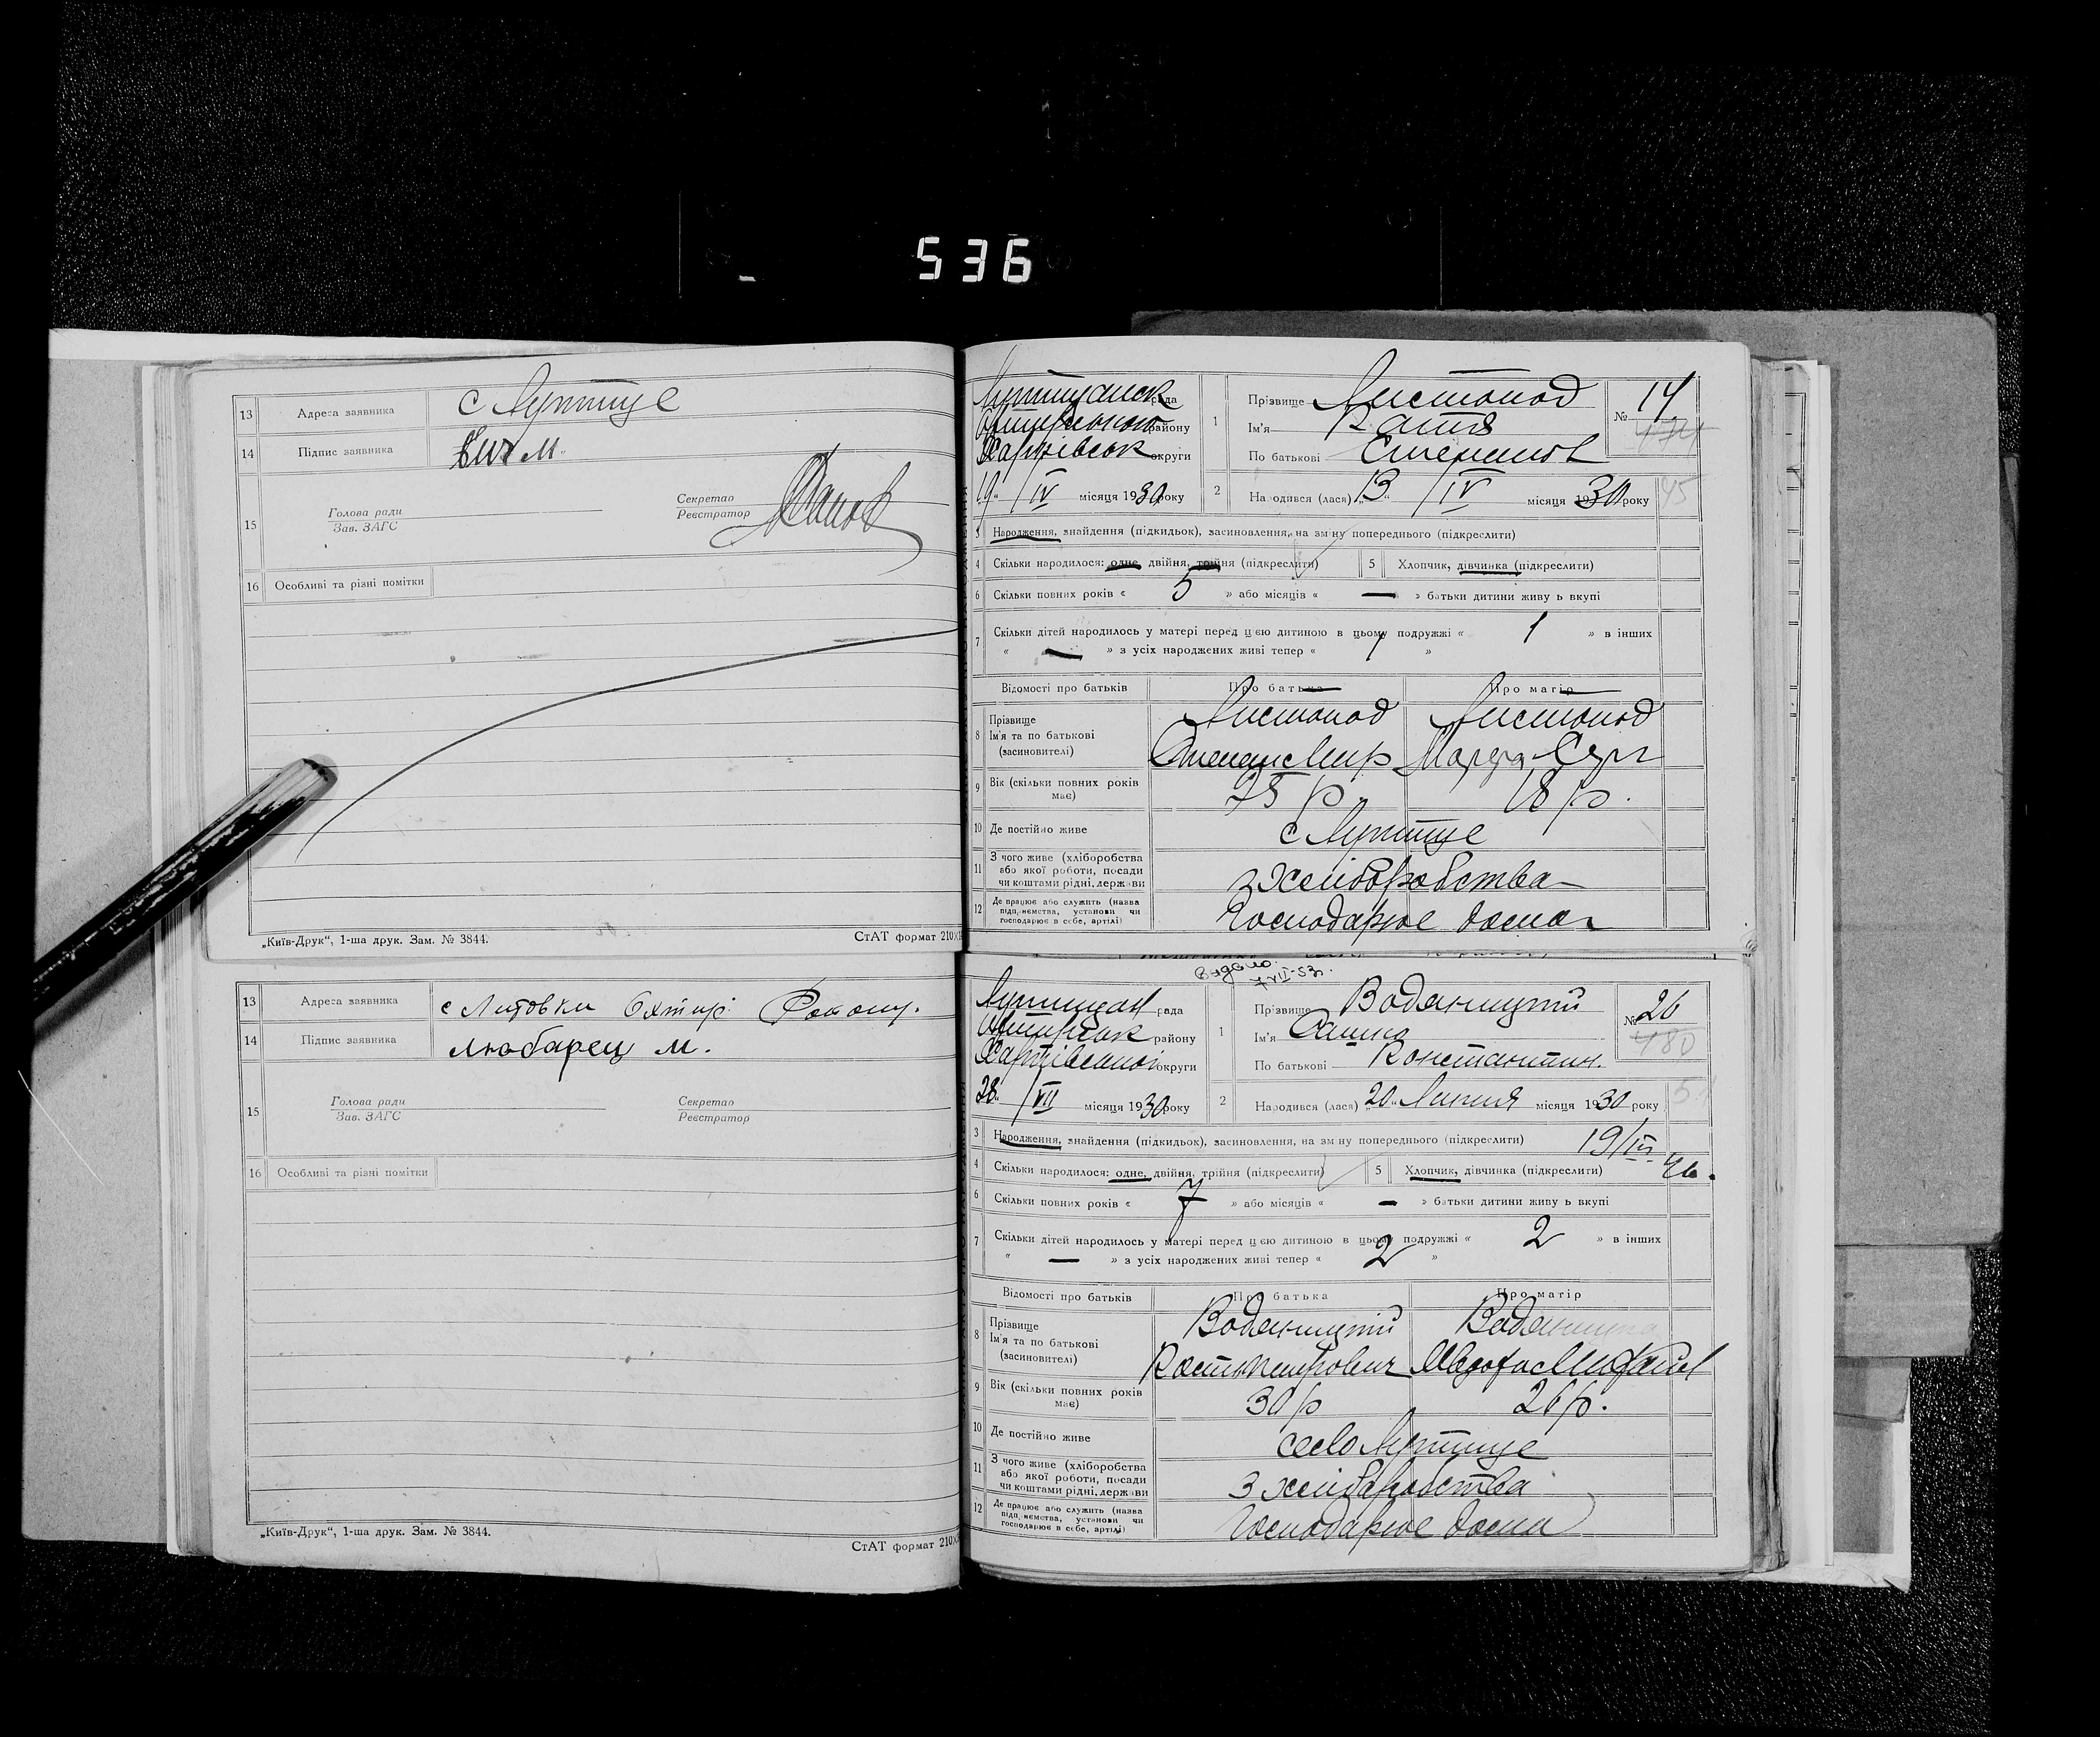 536
13 Адреса заявника с Лутище
14 Підпис заявника
15 Голова ради
Зав. ЗАГС
Секретар
Реєстратор
16 Особливі та різні помітки
„Київ-Друк“, 1-ша друк. Зам. № 3844.
СтАТ формат 210
рада
району
Харківськ округи
19 / IV місяця 1930 року
1 Прізвище Листопад
Ім'я Катя
По батькові Степанов
№ 14
2 Народився (лася) 13 / IV місяця 1930 року
45
3 Народження, знайдення (підкидьок), засиновлення, на зміну попереднього (підкреслити)
4 Скільки народилося: одне, двійня, трійня (підкреслити)
5 Хлопчик, дівчинка (підкреслити)
6 Скільки повних років « 5 » або місяців « — » батьки дитини живуть вкупі
7 Скільки дітей народилось у матері перед цією дитиною в цьому подружжі « 1 » в інших
« — » з усіх народжених живі тепер « 1 »
Відомості про батьків Про батька Про матір
8 Прізвище
Ім'я та по батькові
(засиновителі)
Листопад Листопад
Степан Мир Марфа Серг
9 Вік (скільки повних років має) 25 р. 18 р.
10 Де постійно живе с Лутище
11 З чого живе (хліборобства
або якої роботи, посади
чи коштами рідні, держави
з хліборобства
12 Де працює або служить (назва
підприємства, установи чи
господарює в себе, артілі)
Господарює
13 Адреса заявника с Литовки Охтир.
14 Підпис заявника Любарец М.
15 Голова ради
Зав. ЗАГС
Секретар
Реєстратор
16 Особливі та різні помітки
„Київ-Друк“, 1-ша друк. Зам. № 3844.
СтАТ формат 210
Видано
7 VII-53г.
рада
району
Харківської округи
28 / VII місяця 1930 року
1 Прізвище Водяницкий
Ім'я Сашко
По батькові Константин.
№ 26
480
2 Народився (лася) 20 Липня місяця 1930 року
3 Народження, знайдення (підкидьок), засиновлення, на зміну попереднього (підкреслити)
4 Скільки народилося: одне, двійня, трійня (підкреслити)
5 Хлопчик, дівчинка (підкреслити)
6 Скільки повних років « 7 » або місяців « — » батьки дитини живуть вкупі
7 Скільки дітей народилось у матері перед цією дитиною в цьому подружжі « 2 » в інших
« — » з усіх народжених живі тепер « 2 »
Відомості про батьків Про батька Про матір
8 Прізвище
Ім'я та по батькові
(засиновителі)
Водяницкий
9 Вік (скільки повних років має) 30 р 26 р.
10 Де постійно живе село Лутище
11 З чого живе (хліборобства
або якої роботи, посади
чи коштами рідні, держави
З хліборобства
12 Де працює або служить (назва
підприємства, установи чи
господарює в себе, артілі)
Господарює